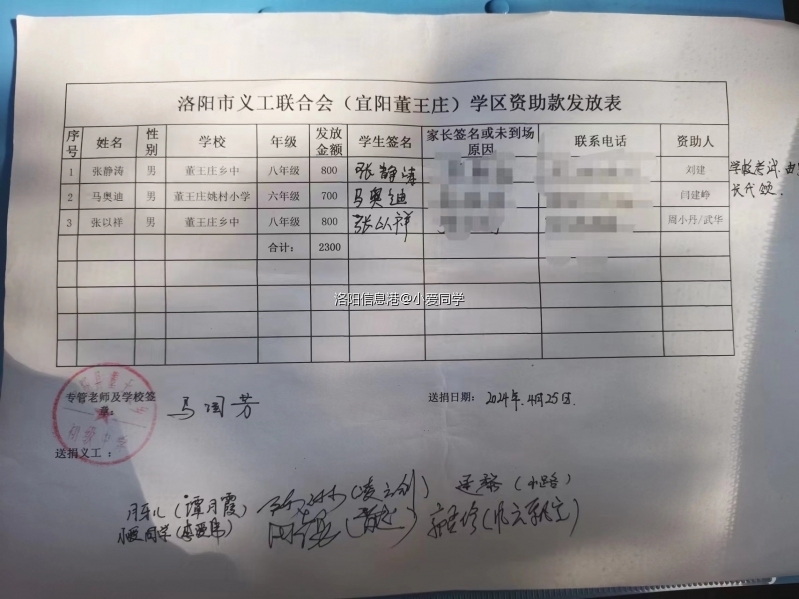 洛阳市义工联合会（宜阳董王庄）学区资助款发放表
序号 姓名 性别 学校 年级 发放金额 学生签名 家长签名或未到场原因 联系电话 资助人
1 张静涛 男 董王庄乡中 八年级 800 张静涛 刘建 学校考试.由
2 马奥迪 男 董王庄姚村小学 六年级 700 马奥迪 闫建峥 代领.
3 张以祥 男 董王庄乡中 八年级 800 张以祥 周小丹/武华
合计： 2300
洛阳信息港@小爱同学
专管老师及学校签章： 马国芳 送捐日期： 2024年.4月25日.
送捐义工：
月牙儿（谭月霞） （凌云剑） （小路）
小爱同学